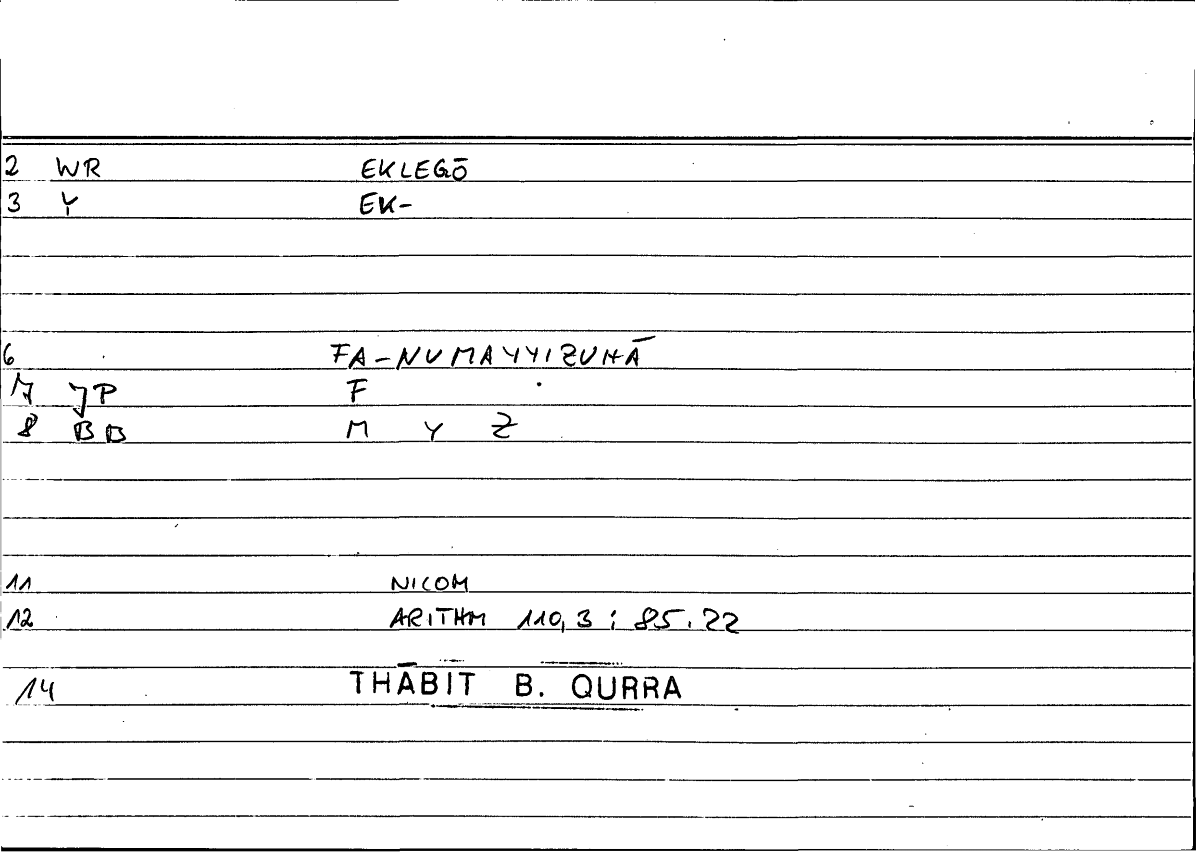 2 WR EKLEGŌ
3 Y EK-
6 FA-NUMAYYIZUHĀ
7 JP F
8 BB M Y Z
11 NICOM
12 ARITHM 110,3 ; 85.22
14 THĀBIT B. QURRA